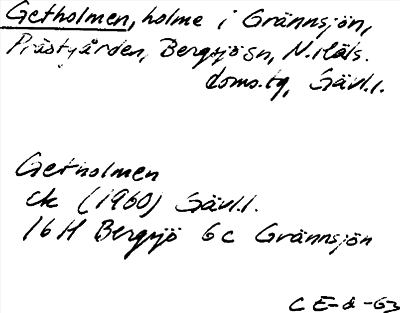 Getholmen, holme i Grännsjön,
Prästgården, Bergsjö sn, N. Häls.
doms.tg, Gävl.l.
Getholmen
ek (1960) Gävl.l.
16H Bergsjö 6c Grännsjön
C E-d -63